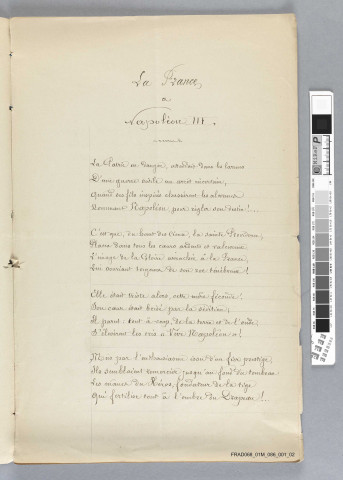 La France
a
Napoléon III.
La Patrie en danger, attendait dans les larmes
D'une guerre civile au arrêt incertain,
Quand ses fils inspirés chassèrent les alarmes
Nommant Napoléon pour régler son destin!...
C'est que, du haut des Cieux, la sainte Providence,
Plaça dans tous les cœurs ardents et valeureux
L'image de la Gloire arrachée à la France,
En devisant toujours de son roi
Elle était triste alors, cette mère féconde!
Son cœur était brisé par la
Il parut: tout à coup, de la terre et de l'onde
S'élevèrent les cris de Vive Napoléon!
Mais par l'enthousiasme issu d'un fier prestige,
Ils semblaient remercier jusqu'au fond du tombeau
Les mânes du Héros, fondateur de la tige
Qui fortifiée tout à l'ombre du Drapeau!...
FRAD068_01M_096_001_02